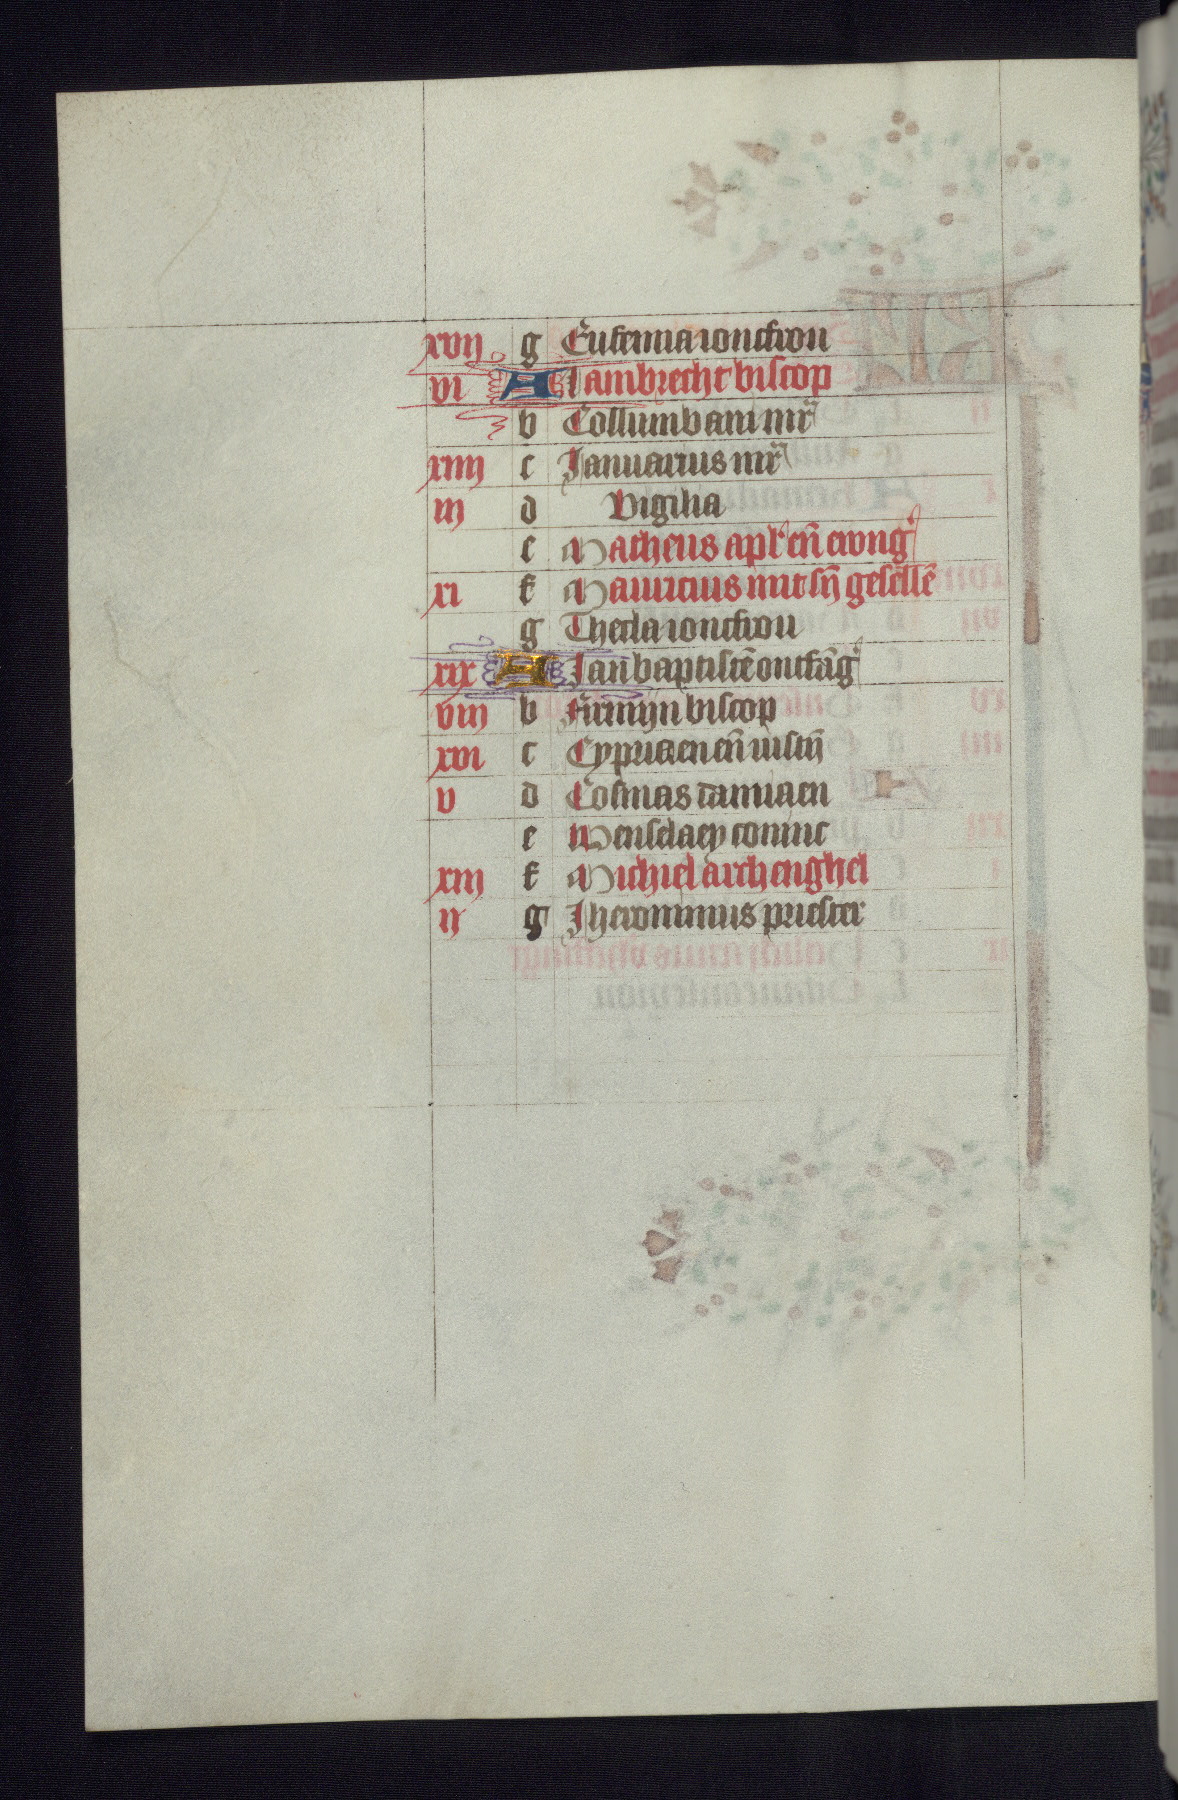 xvij g Eufemia ioncfrou
vi A Lambrecht biscop
b Columbani mr̄
xiiij c Januarius mr̄
iij d Vigilia
e Matheus apl' eñ ewāg'
xi f Mauricius mit sȳ gesellē
g Thecla ioncfrou
xix A Jan baptistē ontfāg'
viij b Firmijn biscop
xvi c Cypriaen eñ iustȳ
v d Cosmas damiaen
e Wenselaeꝯ coninc
xiij f Michiel archenghel
ij g Jheronimus priester